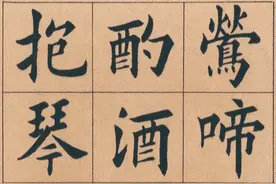 鶯啼
酌酒
抱琴